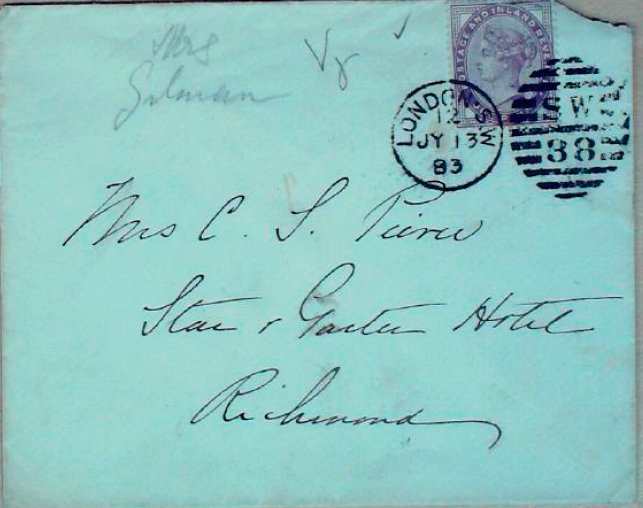 Mrs
Gilman
POSTAGE AND INLAND REVE
LONDON S.W
12
JY 13
83
S.W
38
Mrs C. S. Peirce
Star & Garter Hotel
Richmond